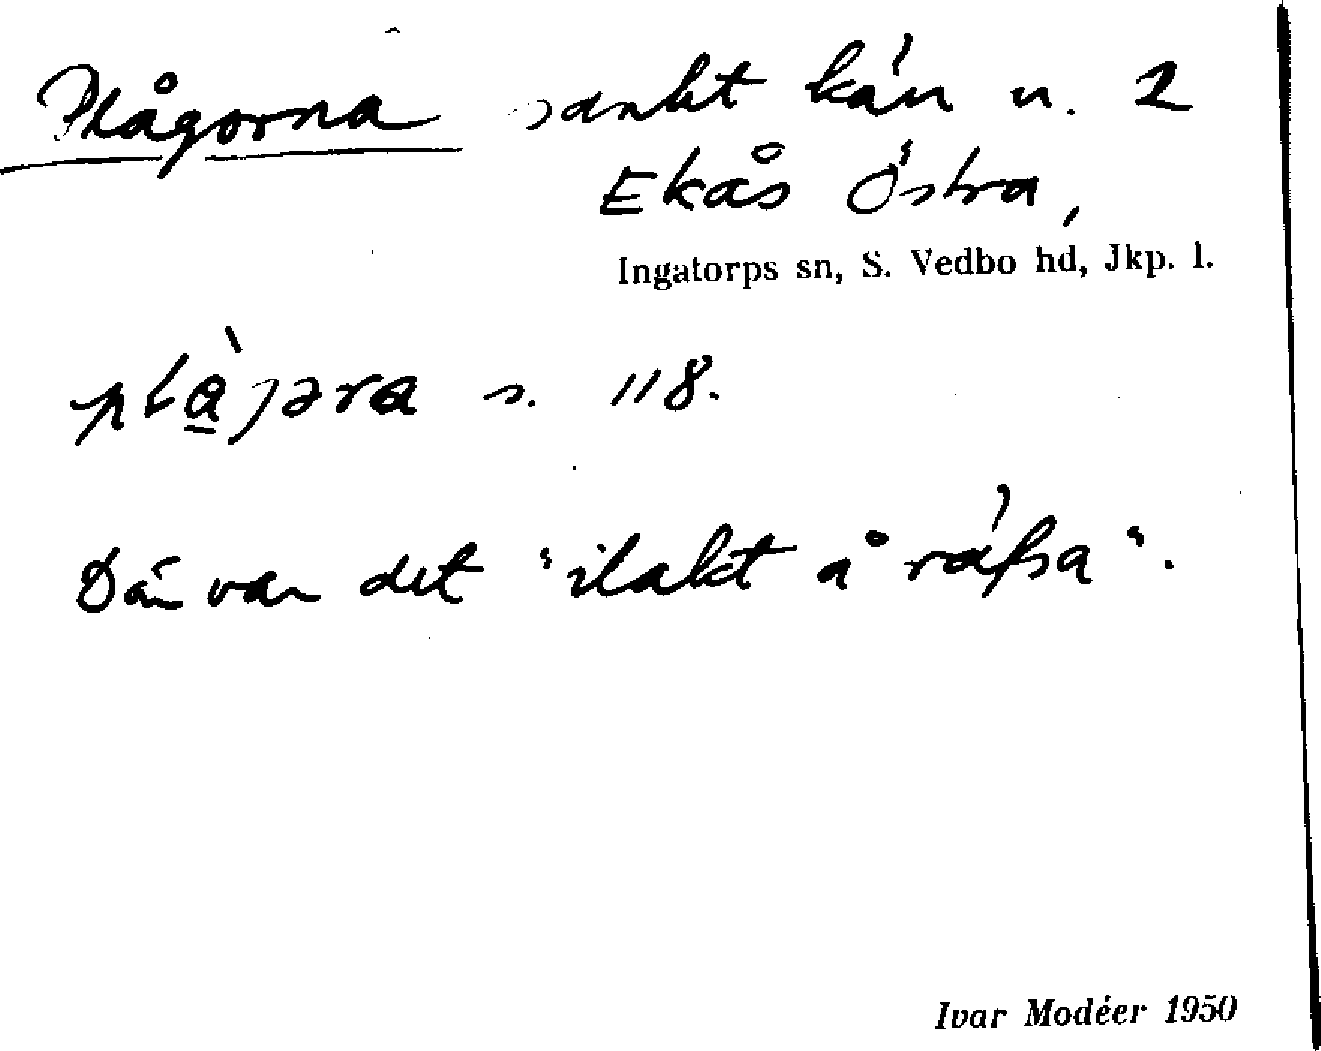 Plågorna sankt kärr n. 2
Ekås Östra,
Ingatorps sn, S. Vedbo hd, Jkp. l.
plὰ̲jəra s. 118.
Där var det "ilakt å räfsa".
Ivar Modéer 1950